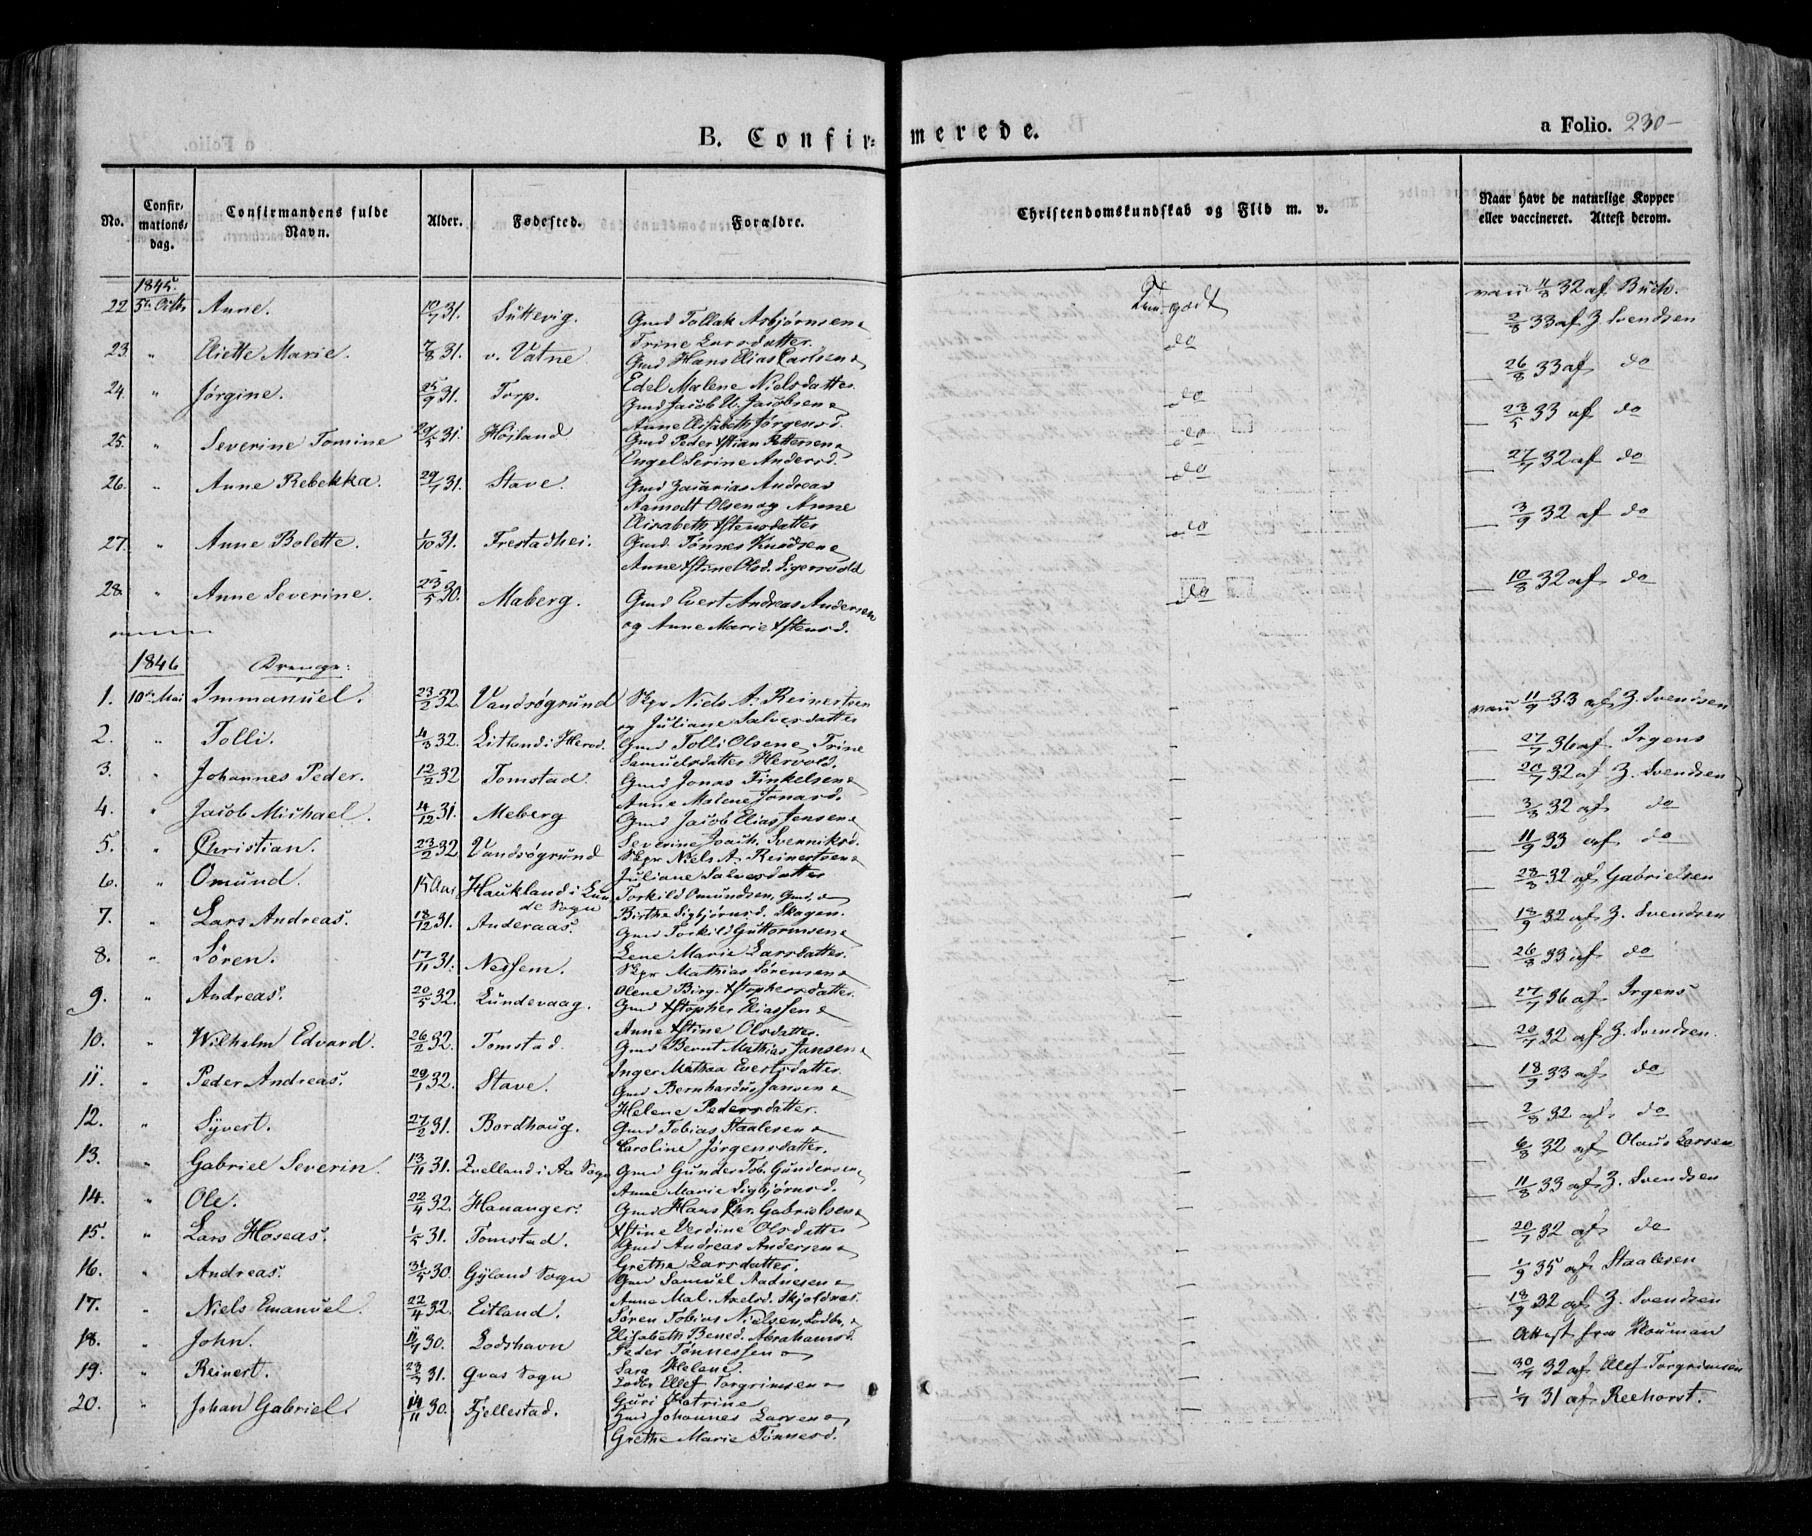 B. Confir= merede.
a Folio. 230-
No. Confir= mations= dag. Confirmandens fulde Navn. Alder. Fødested. Forældre. Christendomskundskab og Flid m. v. Naar havt de naturlige Kopper eller vaccineret. Attest derom.
1845.
22 5te Anne. 10/7 31. Gud Tollak Asbjørnsen & godt 11/8 32 af Buch.
Trine Larsdatter.
23. " Eliette Marie. 7/8 31. v. Vatne Gmd Hans Elias Carlsen & do 2/8 33 af Z Svendsen
Edel Malene Nielsdatter
24. " Jørgine. 25/9 31. Torp. Gmd Jacob U. Jacobsen & do 26/8 33 af do
Anne Elisabeth Jørgensd.
25. " Severine Tomine 29/5 31. Høiland Gmd Peder Xstian Pettersen & do 23/5 33 af do
Engel Serine Andersd.
26. " Anne Rebekka. 29/7 31. Stave. Gmd Zacarias Andreas do 27/7 32 af do
Aamodt Olsen og Anne
Elisabeth Xstensdatter
27. " Anne Bolette. 1/10 31. Frestadhei. Gmd. Tønnes Knudsen & do 3/9 32 af do
Anne Xstine Olsd. Sigersvold
28. " Anne Severine. 23/5 30. Maberg. Gmd Evert Andreas Andersen do 10/8 32 af do
og Anne Marie Xstensd.
1846 Drenge:
1. 10de Mai Immanuel. 23/2 32. Vandsøgrund Skpr Niels A. Reinertsen 11/9 33 af Z. Svendsen
og Juliane Salvesdatter
2. " Tolli. 4/3 32. Eitland i Herod. Gmd Tolli Olsen & Trine 27/7 36 af Irgens
Samuelsdatter Hervold.
3. " Johannes Peder. 12/2 32 Tomstad. Gmd Jonas Tinkelsen & 20/7 32 af Z. Svendsen
Anne Malene Jonasd.
4. " Jacob Michael. 4/12 31. Meberg Gmd Jacob Elias Jensen & 3/8 32 af do
Severine Joach. Svenniksd.
5. " Christian. 23/2 32 Vandsøgrund Skpr Niels A. Reinertsen & 11/9 33 af do
Juliane Salvesdatter
6. " Omund. 15 Aar Haukland i Lun Torkild Omundsen, Gmd, & 28/8 32 af Gabrielsen
de Sogn Birthe Sigbjørnsd. Skogen.
7. " Lars Andreas. 18/12 31. Anderaas. Gmd Torkild Guttormsen & 18/9 32 af Z. Svendsen
Lene Marie Larsdatter.
8. " Søren. 17/11 31. Nessem. Skpr Mathias Sørensen & 26/8 33 af do
Olene Birg. Xstophersdatter.
9. " Andreas. 20/5 32. Lundevaag. Gmd Xstopher Eliassen & 27/7 36 af Irgens
Anne Xstine Olsdatter.
10. " Wilhelm Edvard. 26/2 32. Tomstad. Gmd Bernt Mathias Jansen & 20/7 32 af Z. Svendsen.
Inger Mathea Evertsdatter.
11. " Peder Andreas. 29/1 32. Stave. Gmd Bernhardus Jansen & 18/9 33 af do
Helene Pedersdatter.
12. " Syvert. 27/2 31. Bordhoug. Gmd Tobias Staalesen & 2/8 32 af do
Caroline Jørgensdatter.
13. " Gabriel Severin. 13/11 31. Qvelland i Aa Sogn Gmd Gunder Tob. Gundersen & 6/8 32 af Olaus Larsen
Anne Marie Sigbjørnsd.
14. " Ole. 22/4 32. Hananger. Gmd Hans Chr. Gabrielsen & 11/8 33 af Z. Svendsen
Xstine Verdine Olsdatter
15. " Lars Hoseas. 1/5 31. Tomstad. Gmd Andreas Andersen & 20/7 32 af do
Grethe Larsdatter.
16. " Andreas. 31/5 30. Gyland Sogn Gmd Samuel Aadnesen & 1/9 35 af Staalesen
Anne Mal. Axelsd. Skjoldnæs.
17. " Niels Emanuel. 22/4 32. Eitland. Søren Tobias Nielsen, Lodds, & 18/9 32 af Z. Svendsen
Elisabeth Bened. Abrahamsd.
18. " John. 11/7 30. Lodshavn Peder Tønnessen & Attest fra
Sara Helene.
19. " Reinert. 23/3 31. Qvas Sogn Lodds Ellef Torgrimsen & 30/7 32 af Ellef Torgrimsen
Guri Katrine
20. " Johan Gabriel. 14/11 30. Fjellestad. Gmd Johannes Larsen & 1/7 31 af Reehorst.
Grethe Marie Tønnesd.